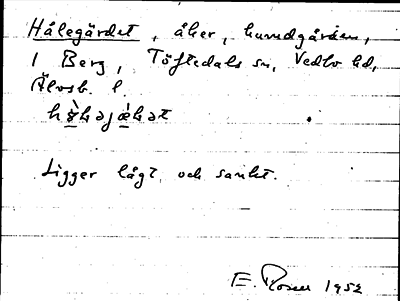 Hålegärdet, åker, hemdgården,
1 Berg, Töftedals sn, Vedbo hd,
Älvsb. l.
Ligger lågt och sankt.
E. Rosen 1952